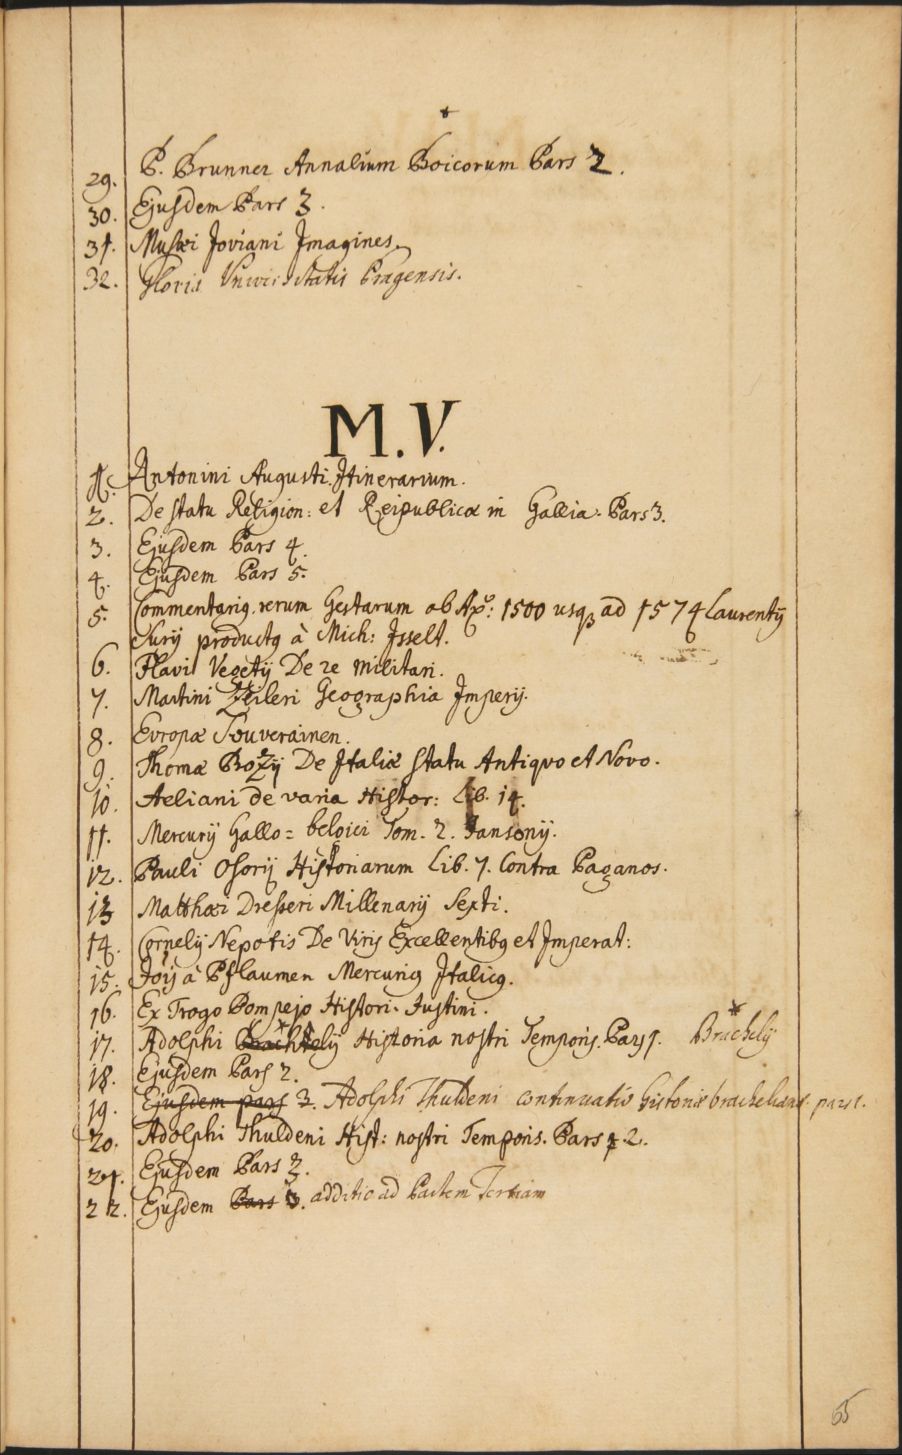 29. P. Brunner Annalium Boicorum Pars 2.
30. Ejusdem Pars 3.
31. Musæi Joviani Imagines.
32. Gloria Universitatis Pragensis.
M.V.
1. Antonini Augusti Itinerarium.
2. De statu Religion: et Reipublicæ in Gallia. Pars 3.
3. Ejusdem Pars 4.
4. Ejusdem Pars 5.
5. Commentariꝯ rerum Gestarum ab Aº: 1500 usqꝫ ad 1574 Laurentÿ
Surÿ productꝯ à Mich: Isselt.
6. Flavi Vegetÿ De re militari.
7. Martini Zeileri Geographia Imperÿ.
8. Europæ Souverainen.
9. Thomæ Bozÿ De Italiæ statu Antiquo et Novo.
10. Aeliani de varia Histor: Lib. 14.
11. Mercurÿ Gallo = belgici Tom. 2. Jansonÿ.
12. Pauli Osorÿ Historiarum Lib. 7. Contra Paganos.
13 Matthæi Dresseri Millenarÿ Sexti.
14. Cornelÿ Nepotis De Viris Excellentibꝯ et Imperat:
15. Joÿ à Pflaumen Mercuriꝯ Italicꝯ.
16. Ex Trogo Pompejo Histori. Justini.
17. Adolphi Brachtelÿ Historia nostri Temporis. Pars 1. * Brachelÿ
18. Ejusdem Pars 2.
19. Ejusdem pars 3. Adolphi Thuldeni continuatio historiæ brachelianæ. pars 1.
20. Adolphi Thuldeni Hist: nostri Temporis. Pars 1. 2.
21. Ejusdem Pars 3.
22. Ejusdem Pars 3. additio ad Partem Tertiam
65